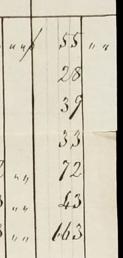 „ „ 55 „ „
28
39
33
„ 72
„ 43
„ 163